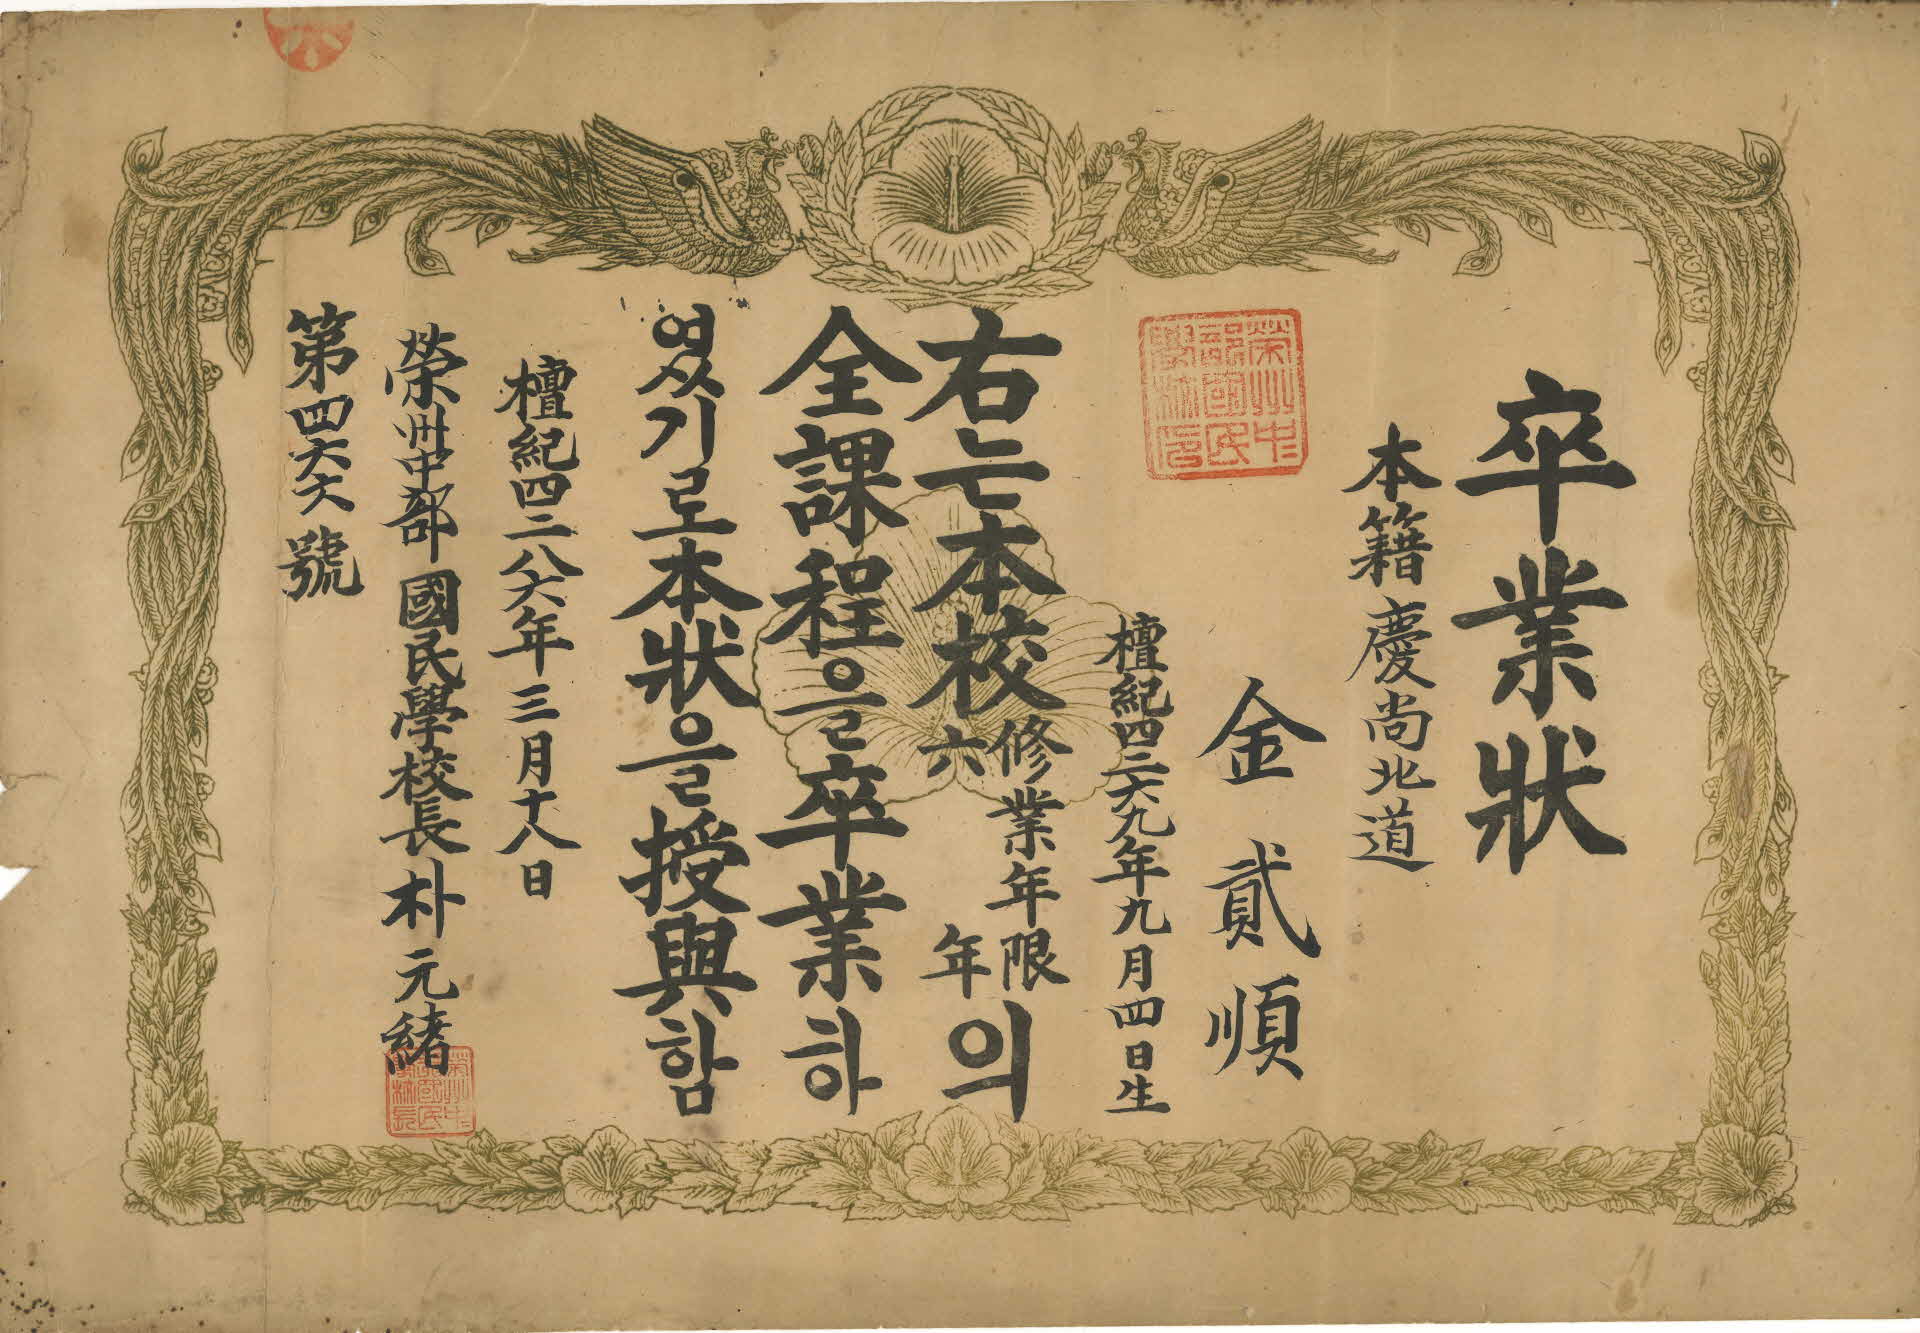 卒業狀
本籍慶尚北道
榮州中
部國民
學校
金貳順
檀紀四二六九年九月四日生
右는本校修業年限六年의
全課程을卒業하
였기로本狀을授與함
檀紀四二八六年三月十八日
榮州中部國民學校長朴元緖
榮州中
部國民
學校長
第四六六號